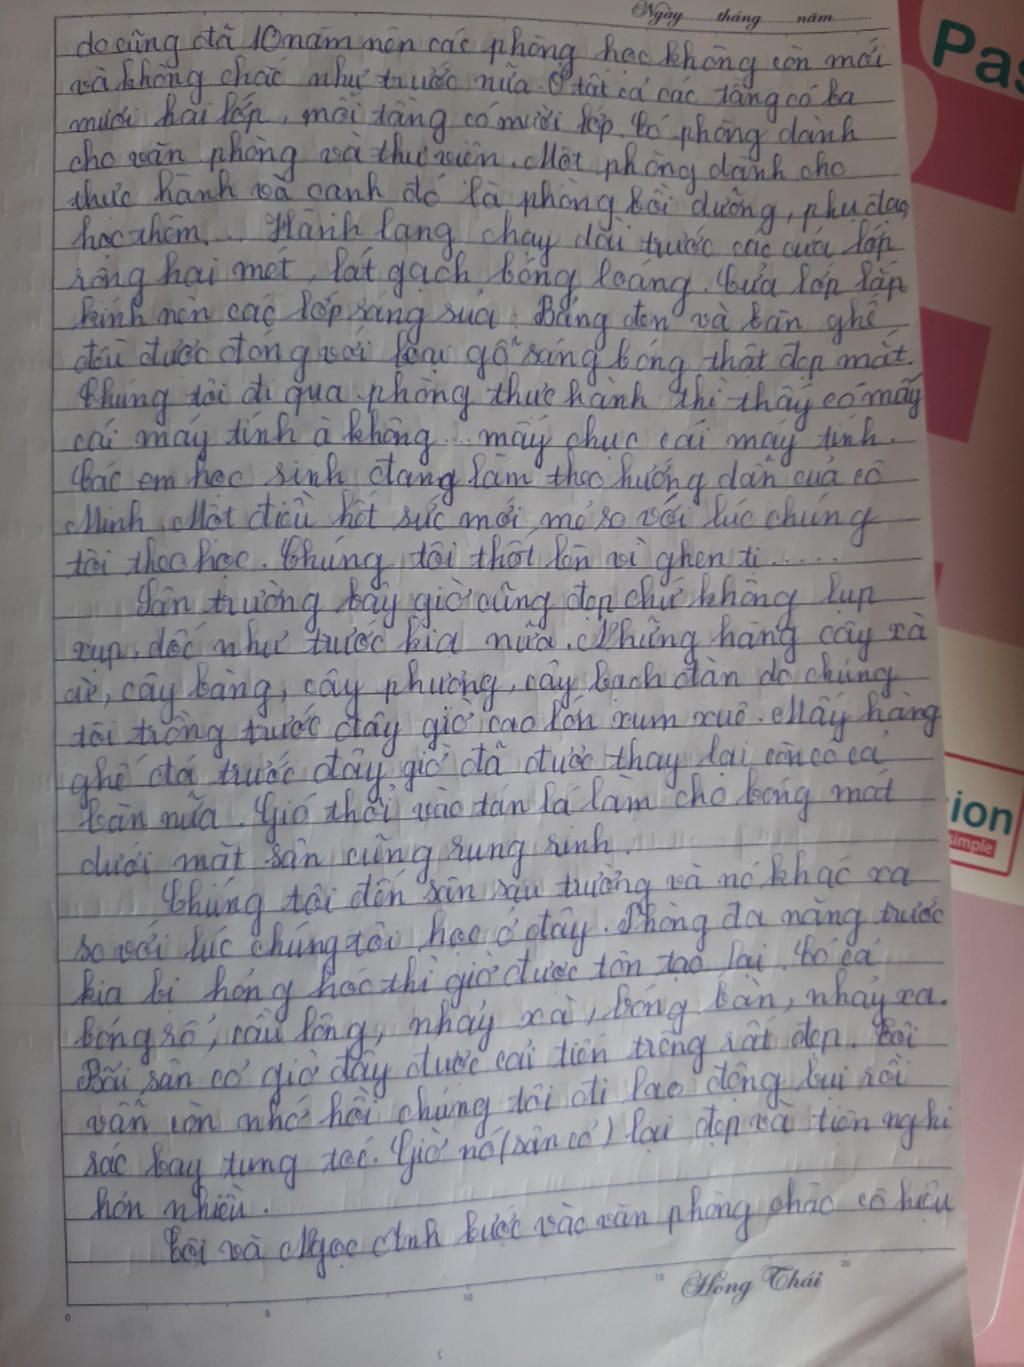 Ngày........tháng........năm..........
do cũng đã 10 năm nên các phòng học không còn mới
và không chắc như trước nữa. Ở tất cả các tầng có ba
mươi hai lớp, mỗi tầng có mười lớp. Có phòng dành
cho văn phòng và thư viện. Một phòng dành cho
thực hành và cạnh đó là phòng bồi dưỡng, phụ đạo,
học thêm... Hành lang chạy dài trước các cửa lớp
rộng hai mét, lát gạch bóng loáng. Cửa lớp lắp
kính nên các lớp sáng sủa. Bảng đen và bàn ghế
đều được đóng với loại gỗ sáng bóng thật đẹp mắt.
Chúng tôi đi qua phòng thực hành thì thấy có mấy
cái máy tính à không... mấy chục cái máy tính.
Các em học sinh đang làm theo hướng dẫn của cô
Minh. Một điều hết sức mới mẻ so với lúc chúng
tôi theo học. Chúng tôi thốt lên vì ghen tị.....
Sân trường bây giờ cũng đẹp chứ không lụp
xụp, dốc như trước kia nữa. Những hàng cây xà
cừ, cây bàng, cây phượng, cây bạch đàn do chúng
tôi trồng trước đây giờ cao lớn xum xuê. Mấy hàng
ghế đá trước đây giờ đã được thay lại còn có cả
bàn nữa. Gió thổi vào tán lá làm cho bóng mát
dưới mặt sân cũng rung rinh.
Chúng tôi đến sân sau trường và nó khác xa
so với lúc chúng tôi học ở đây. Phòng đa năng trước
kia bị hỏng hóc thì giờ được tôn tạo lại. Có cả
bóng rổ, cầu lông, nhảy xà, bóng bàn, nhảy xa.
Bãi sân cỏ giờ đây được cải tiến trông rất đẹp. Tôi
vẫn còn nhớ hồi chúng tôi đi lao động bụi rồi
rác bay tung tóc. Giờ nó (sân cỏ) lại đẹp và tiện nghi
hơn nhiều.
Tôi và Ngọc Anh bước vào văn phòng chào cô hiệu
Hồng Thái
0 5 10 15 20
Pas
ion
simple